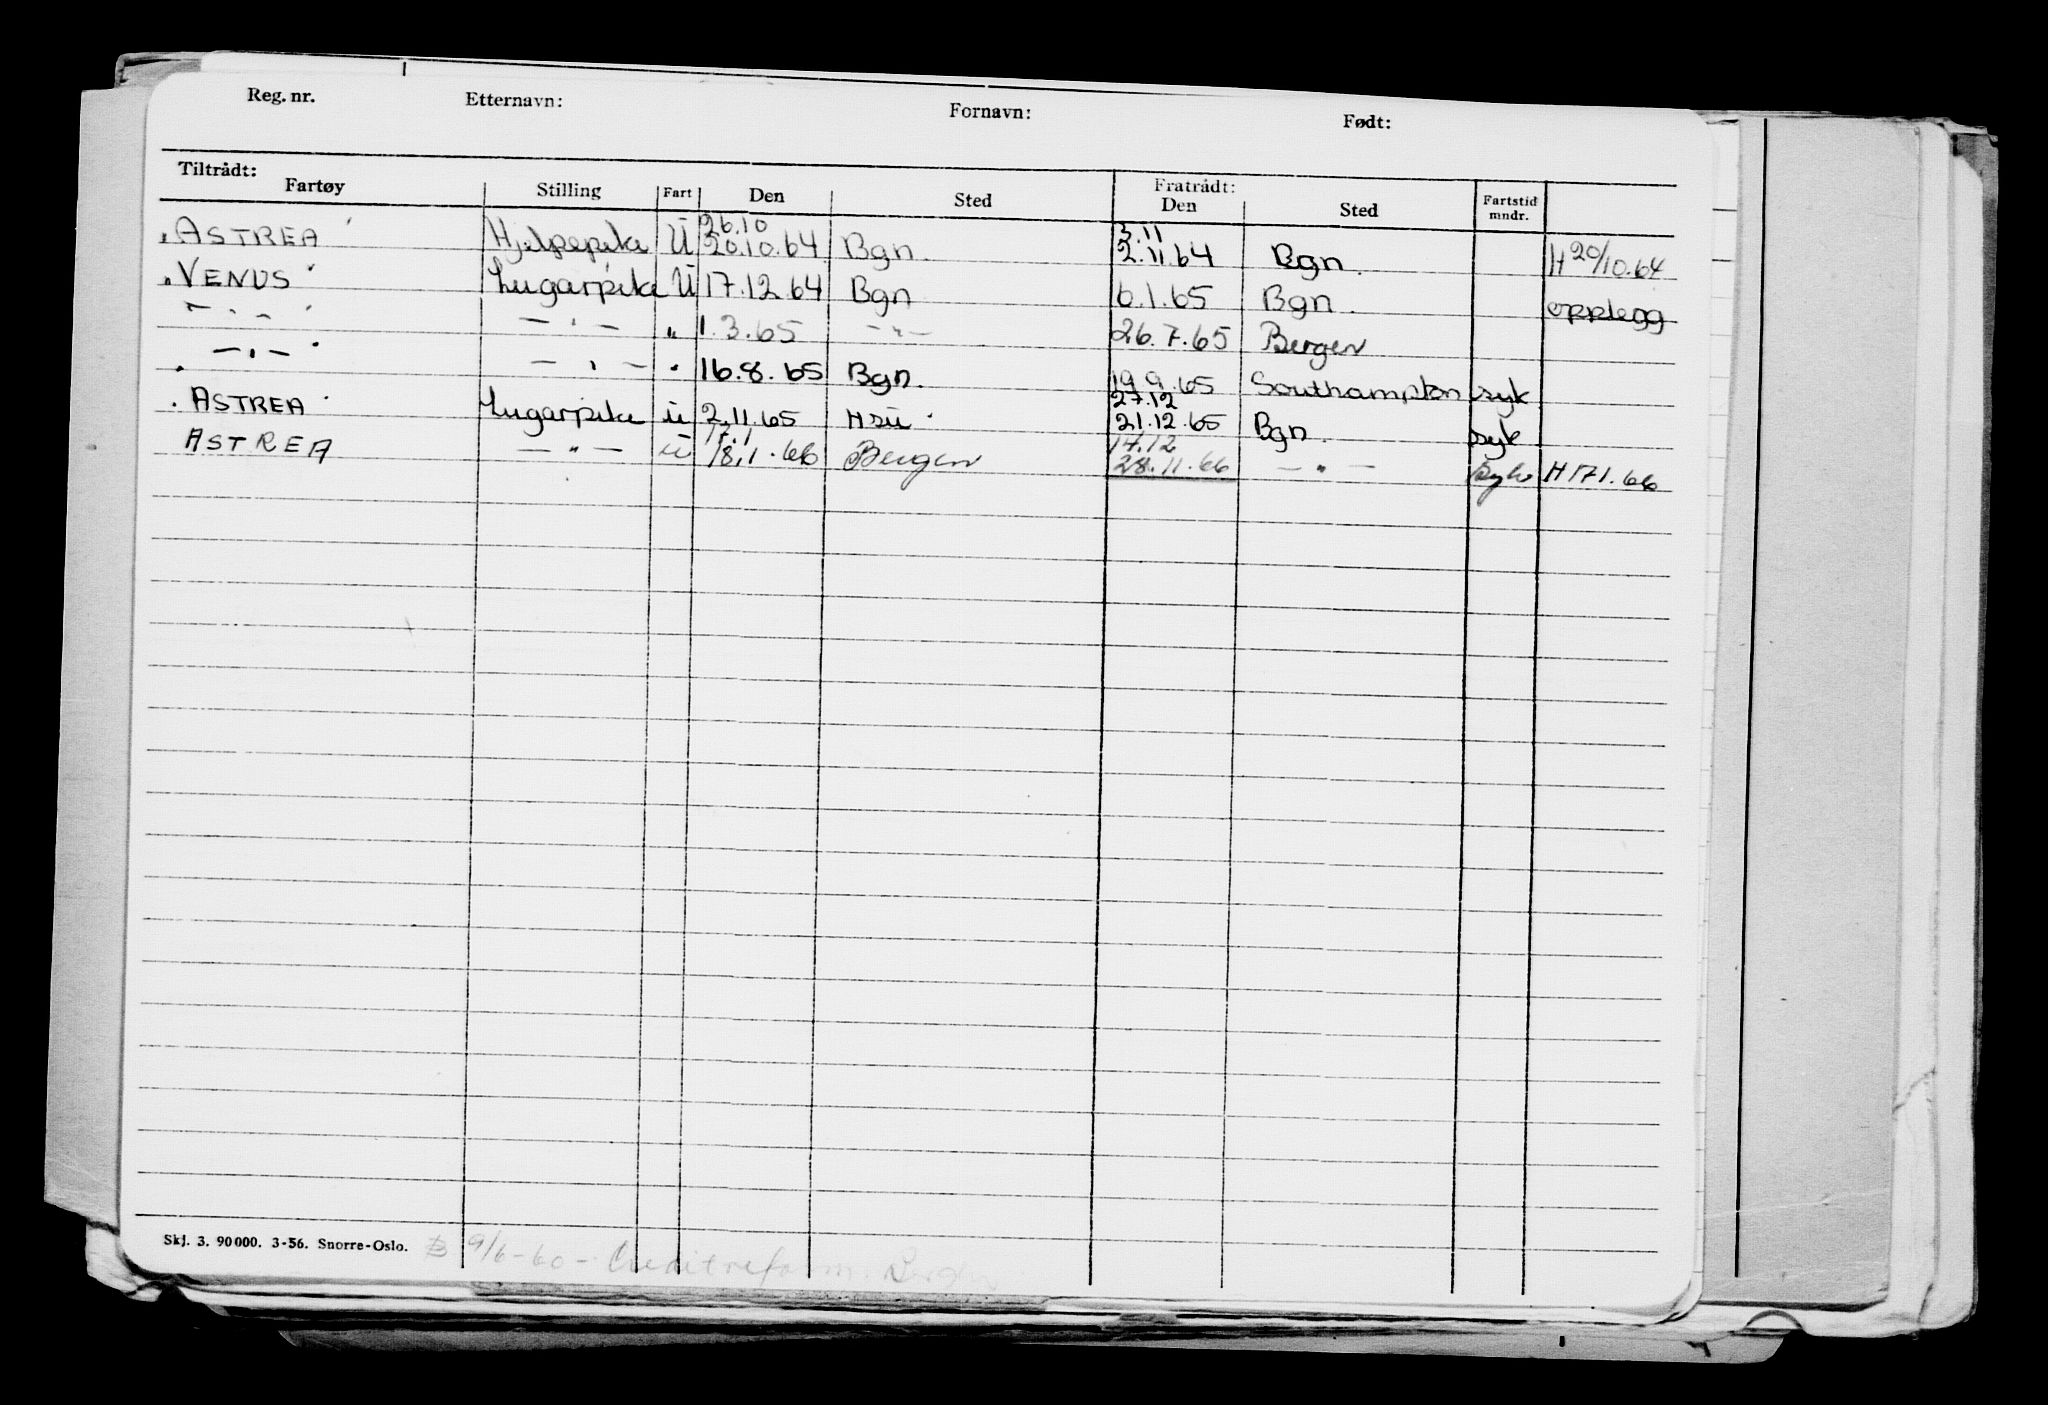 Reg. nr. Etternavn: Fornavn: Født:
Tiltrådt: Fratrådt:
Fartøy Stilling Fart Den Sted Den Sted Fartstid mndr.
26.10 3.11
ASTREA Hjelpepike U 20.10.64 Bgn. 2.11.64 Bgn. H 20/10.64
VENUS Lugarpike U 17.12.64 Bgn 6.1.65 Bgn. opplegg
— " — — " — " 1.3.65 — " — 26.7.65 Bergen
— " — — " — " 16.8.65 Bgn. 19.9.65 Southampton syk
27.12
ASTREA Lugarpike U 2.11.65 21.12.65 Bgn. syk
17.1 14.12
ASTREA — " — U 18.1.66 Bergen 28.11.66 — " — Syk H 17/1.66
Skj. 3. 90 000. 3-56. Snorre-Oslo. 9/6-60 - Creditreform. Bergen